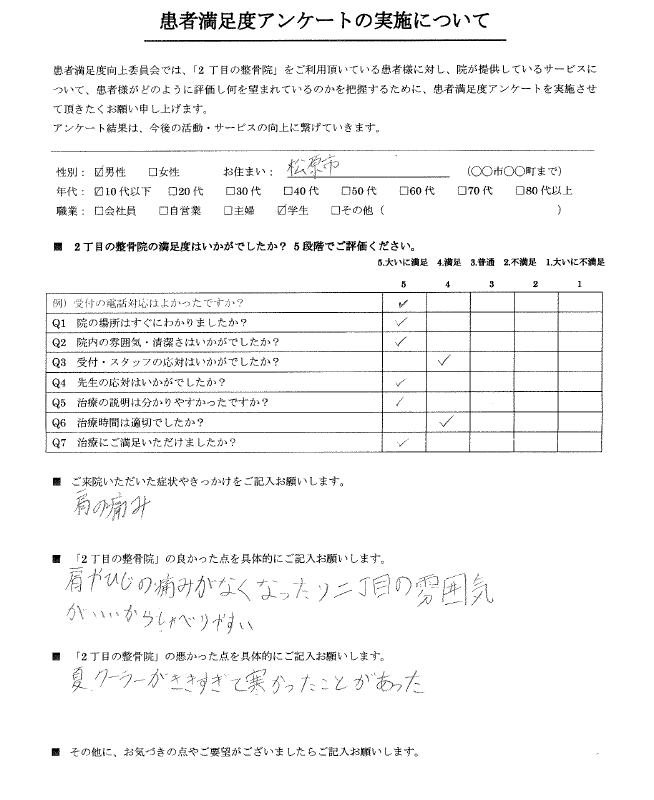 患者満足度アンケートの実施について
患者満足度向上委員会では、「2丁目の整骨院」をご利用頂いている患者様に対し、院が提供しているサービスに
ついて、患者様がどのように評価し何を望まれているのかを把握するために、患者満足度アンケートを実施させ
て頂きたくお願い申し上げます。
アンケート結果は、今後の活動・サービスの向上に繋げていきます。
性別： ☑男性 □女性 お住まい： 松原市 （〇〇市〇〇町まで）
年代： ☑10代以下 □20代 □30代 □40代 □50代 □60代 □70代 □80代以上
職業： □会社員 □自営業 □主婦 ☑学生 □その他（ ）
■ 2丁目の整骨院の満足度はいかがでしたか？ 5段階でご評価ください。
5.大いに満足 4.満足 3.普通 2.不満足 1.大いに不満足
5 4 3 2 1
例）受付の電話対応はよかったですか？ ✓
Q1 院の場所はすぐにわかりましたか？ ✓
Q2 院内の雰囲気・清潔さはいかがでしたか？ ✓
Q3 受付・スタッフの応対はいかがでしたか？ ✓
Q4 先生の応対はいかがでしたか？ ✓
Q5 治療の説明は分かりやすかったですか？ ✓
Q6 治療時間は適切でしたか？ ✓
Q7 治療にご満足いただけましたか？ ✓
■ ご来院いただいた症状やきっかけをご記入お願いします。
肩の痛み
■ 「2丁目の整骨院」の良かった点を具体的にご記入お願いします。
肩やひじの痛みがなくなったり二丁目の雰囲気
がいいからしゃべりやすい
■ 「2丁目の整骨院」の悪かった点を具体的にご記入お願いします。
夏、クーラーがききすぎて寒かったことがあった
■ その他に、お気づきの点やご要望がございましたらご記入お願いします。